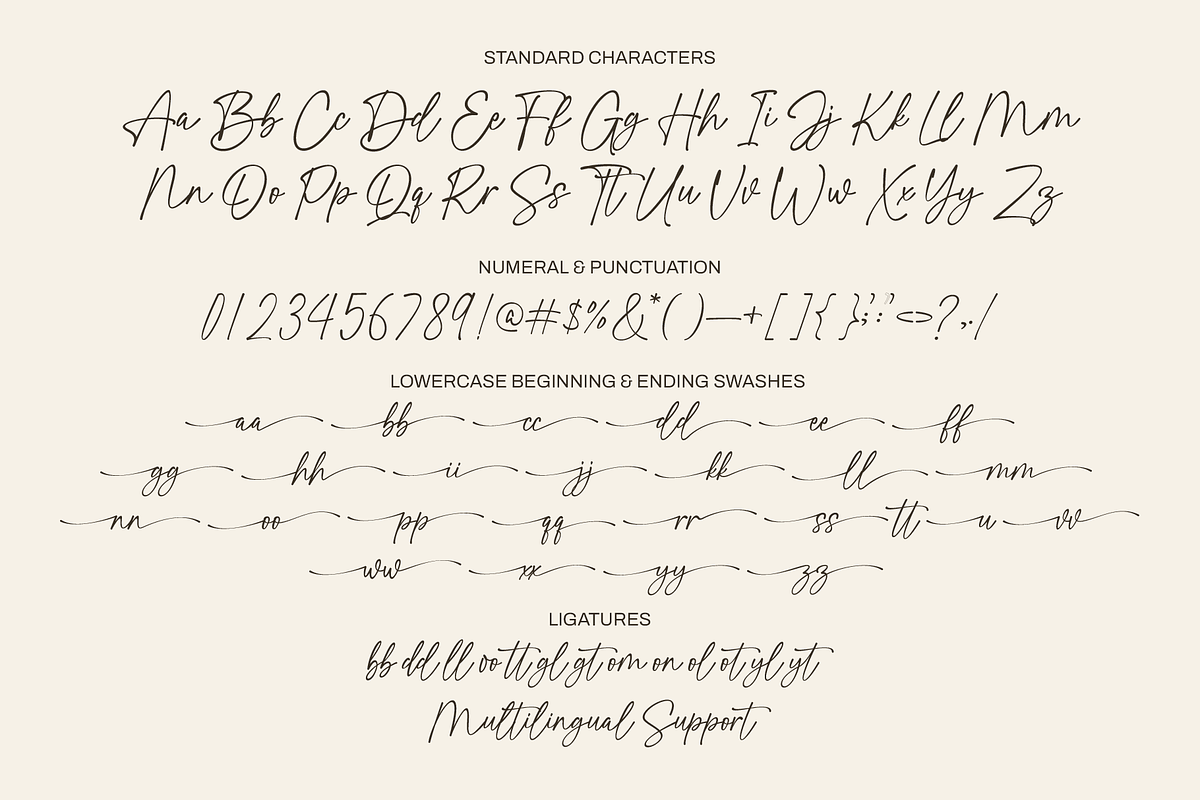 STANDARD CHARACTERS
Aa Bb Cc Dd Ee Ff Gg Hh Ii Jj Kk Ll Mm
Nn Oo Pp Qq Rr Ss Tt Uu Vv Ww Xx Yy Zz
NUMERAL & PUNCTUATION
0123456789!@#$%&*( )—+[ ]{ };':'"<>?,./
LOWERCASE BEGINNING & ENDING SWASHES
aa bb cc dd ee ff
gg hh ii jj kk ll mm
nn oo pp qq rr ss tt u vv
ww xx yy zz
LIGATURES
bb dd ll oo tt gl gt om on ol ot yl yt
Multilingual Support